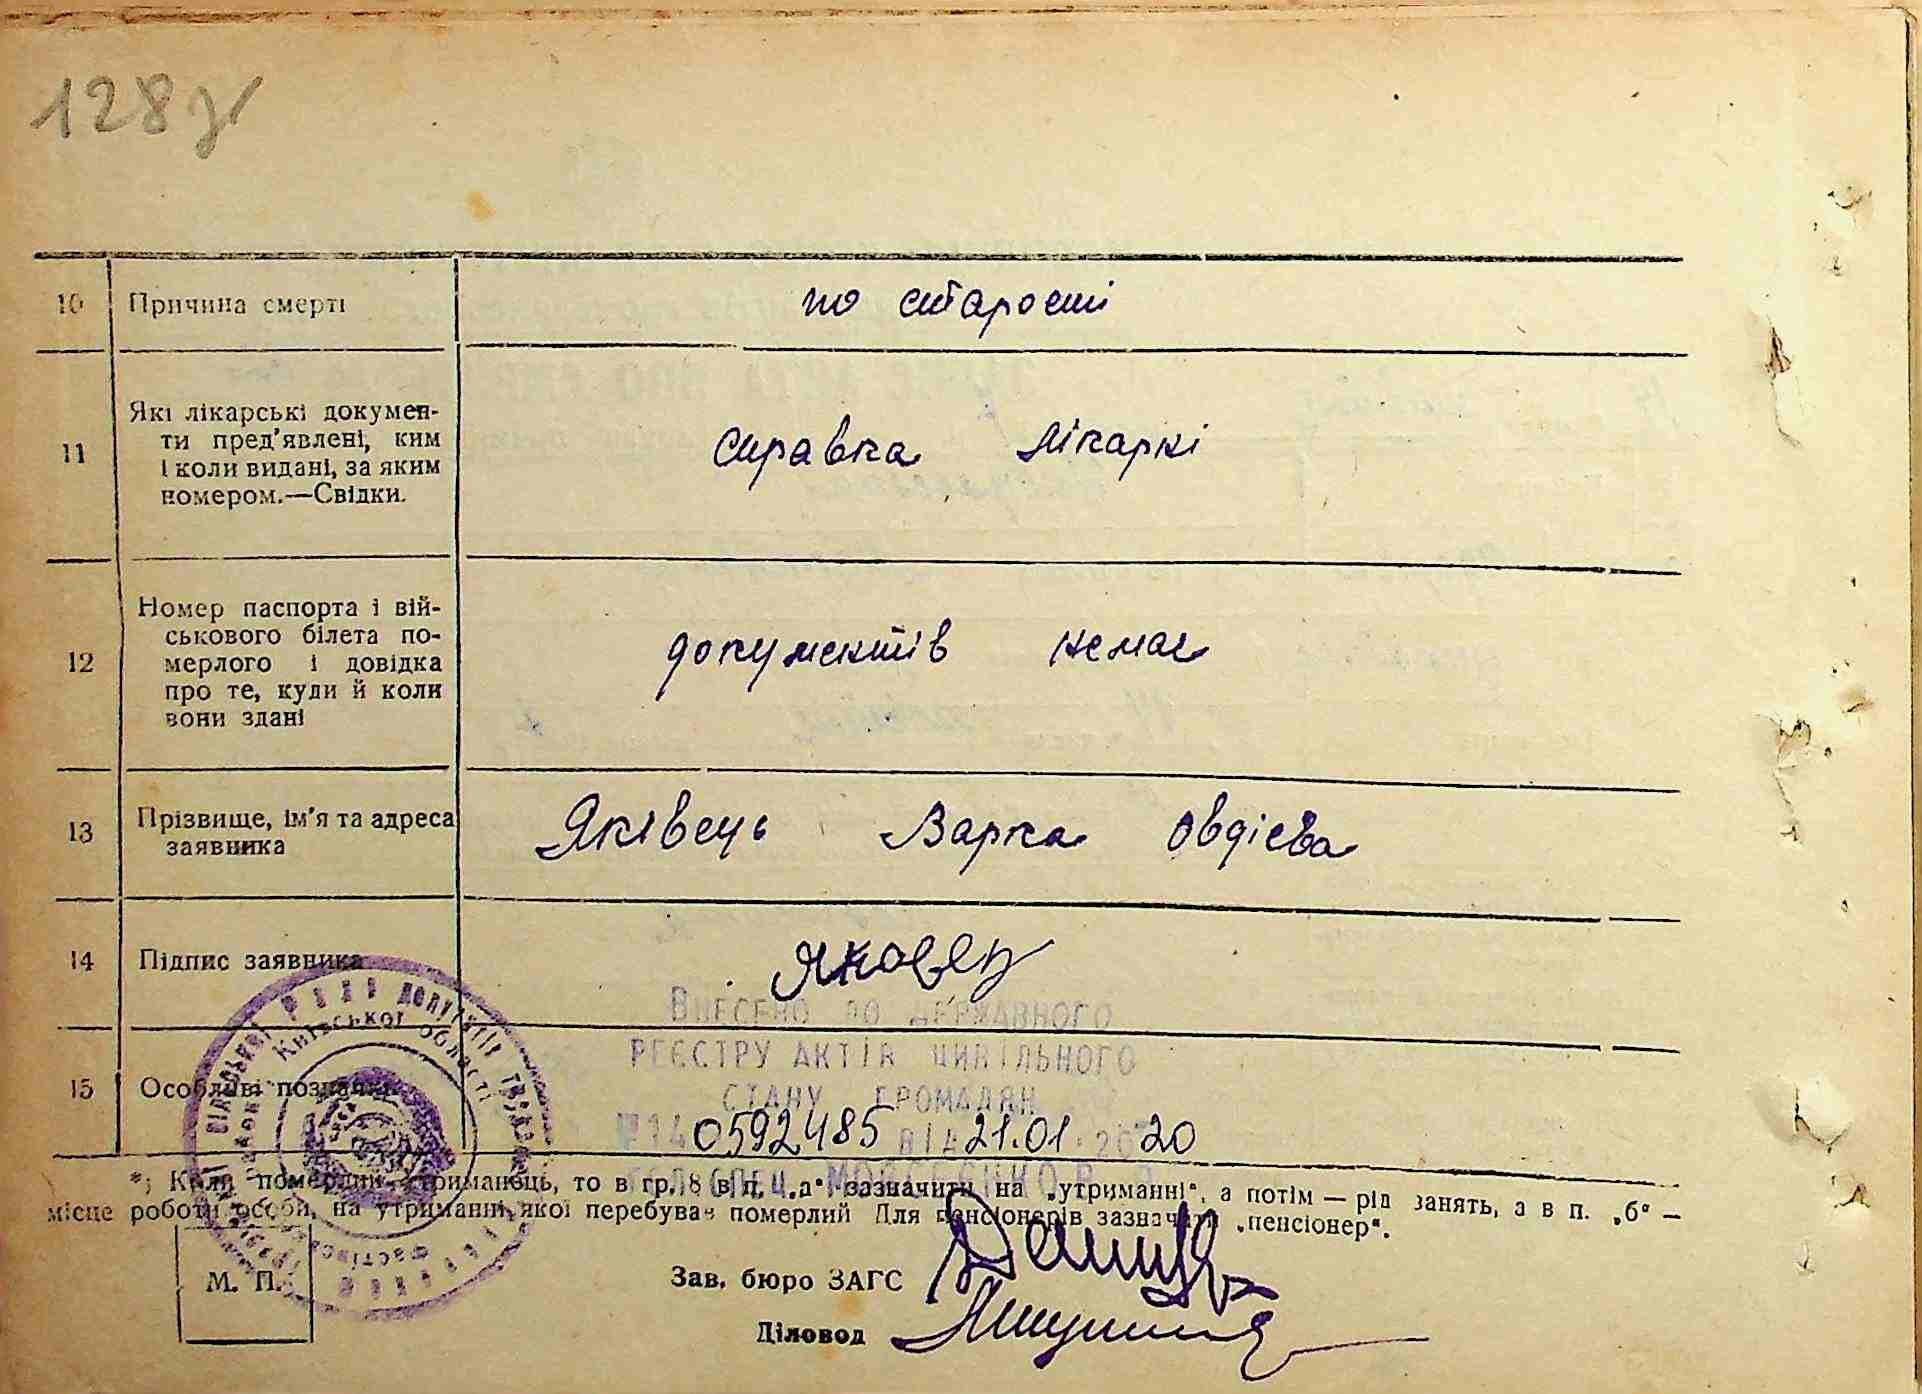 128 зв
10 Причина смерті по старості
11 Які лікарські докумен-
ти пред'явлені, ким
і коли видані, за яким
номером.—Свідки.
справка лікаркі
12 Номер паспорта і вій-
ськового білета по-
мерлого і довідка
про те, куди й коли
вони здані
документів немає
13 Прізвище, ім'я та адреса
заявника
Яківець Варка Овдієва
14 Підпис заявника Яковец
15 Особливі позначки
Внесено до державного
реєстру актів цивільного
стану громадян
0592485 від 21.01.2020
*) Коли померлий утриманець, то в гр. 8 в п. „а“ зазначити на „утриманні“, а потім — рід занять, а в п. „б“ —
місце роботи особи, на утриманні якої перебував померлий Для пенсіонерів зазначати „пенсіонер“.
М. П.
Зав. бюро ЗАГС
Діловод
Київської області